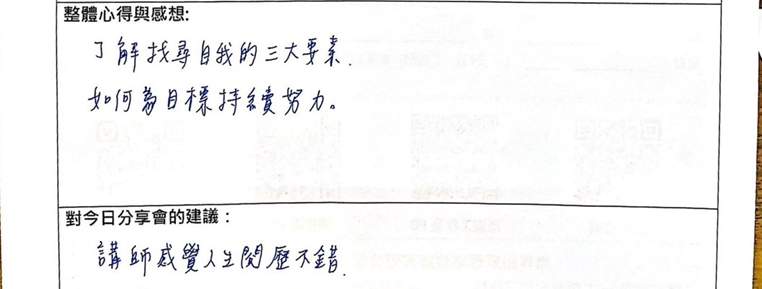 整體心得與感想:
了解找尋自我的三大要素.
如何為目標持續努力。
對今日分享會的建議：
講師感覺人生閱歷不錯.